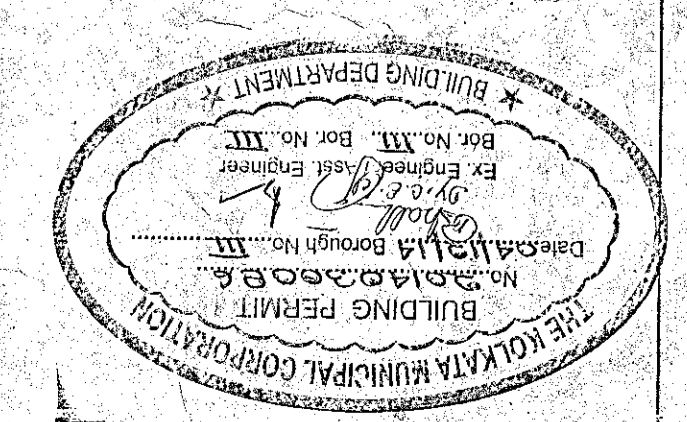 THE KOLKATA MUNICIPAL CORPORATION
BUILDING PERMIT
No.
Date 04/12/14 Borough No. III
Dy. C.E.
Ex. Engineer Asst. Engineer
Bor. No. III Bor. No. III
★ BUILDING DEPARTMENT ★